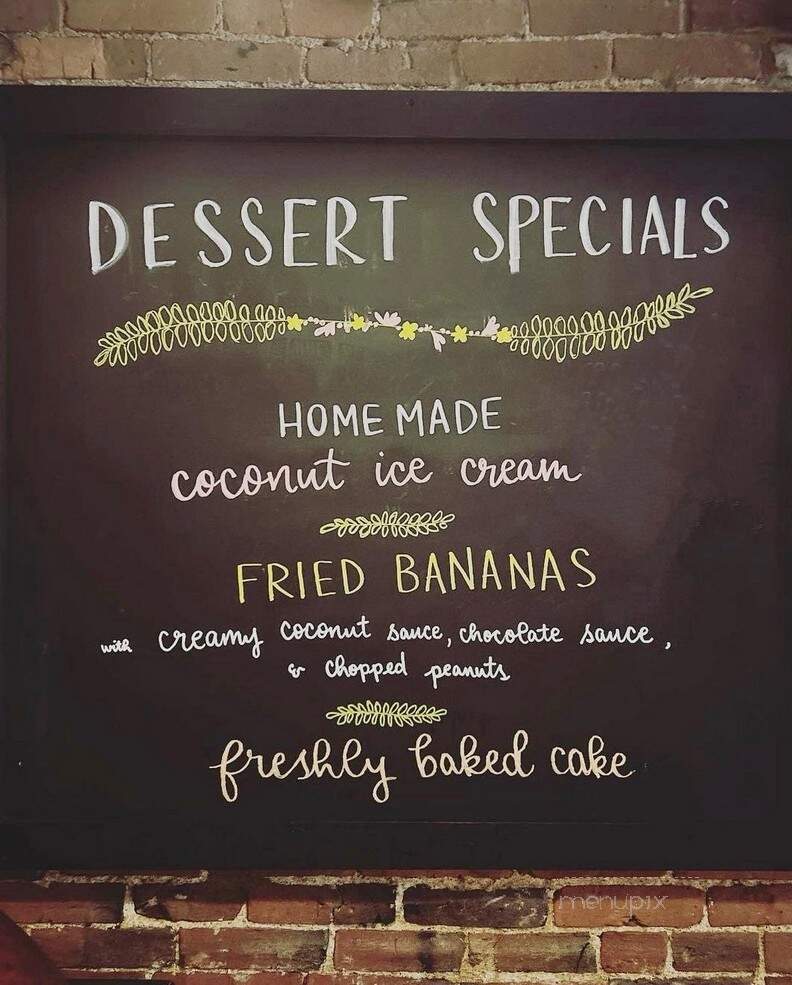 DESSERT SPECIALS
HOME MADE
coconut ice cream
FRIED BANANAS
with creamy coconut sauce, chocolate sauce,
& chopped peanuts
freshly baked cake
menupix